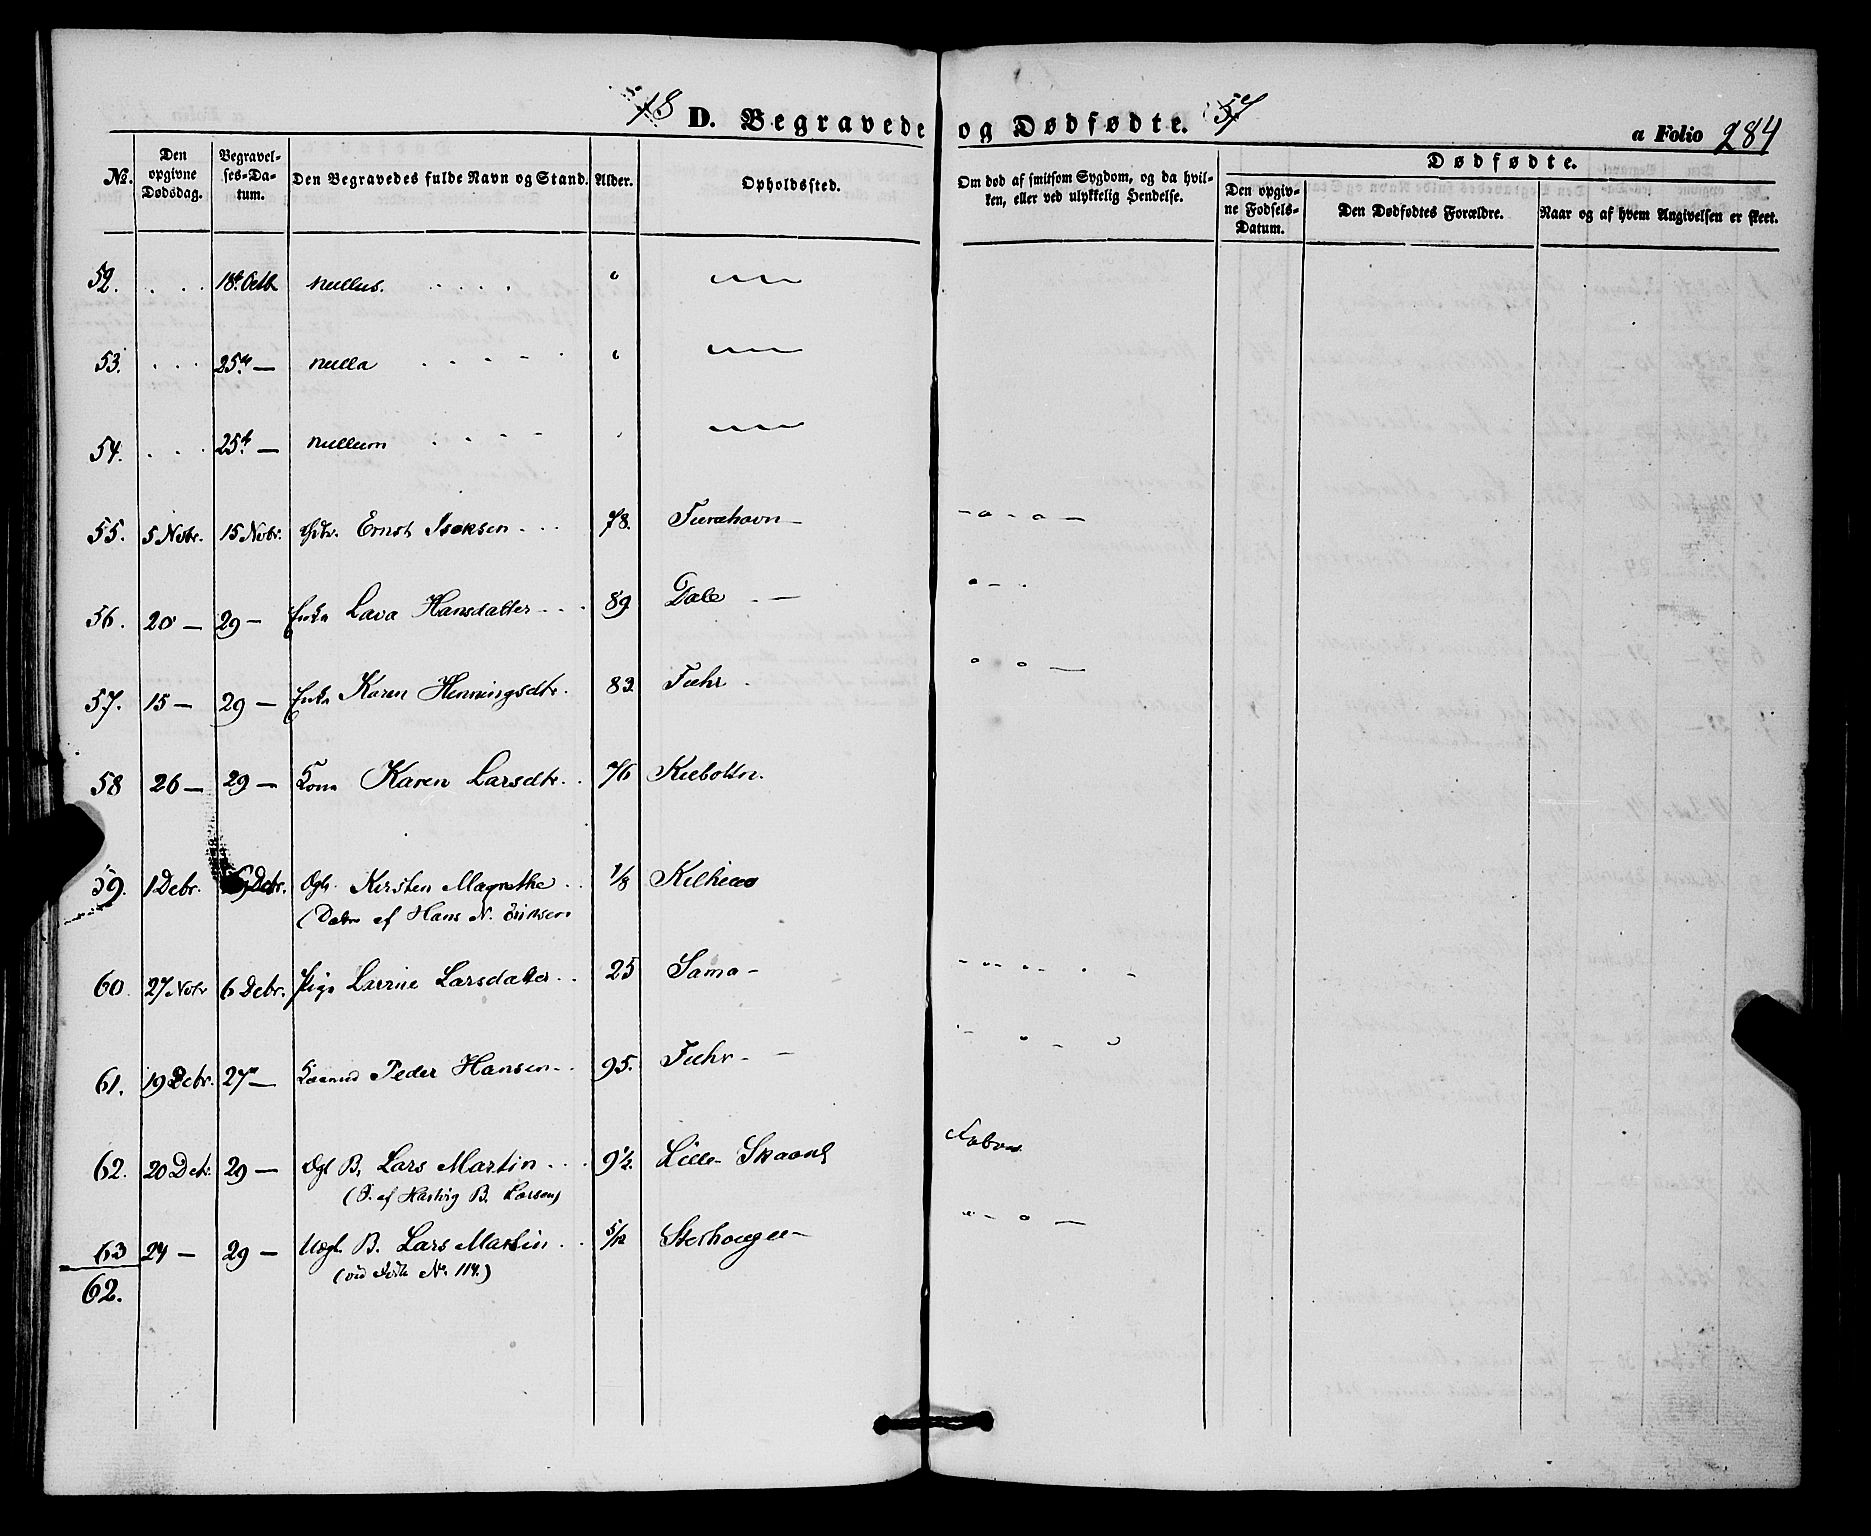 18 D. Begravede og Dødfødte. 57
a Folio 284
No. Den opgivne Dødsdag. Begravelses-Datum. Den Begravedes fulde Navn og Stand. Alder. Opholdssted. Om død af smitsom Sygdom, og da hvilken, eller ved ulykkelig Hendelse. Dødfødte.
Den opgivne Fødsels-Datum. Den Dødfødtes Forældre. Naar og af hvem Angivelsen er skeet.
52. 18de Octb nullus.
53. 25de — nulla
54. 25de — nullum
55. 5 Nobr. 15 Nobr. Ernst Isaksen 78.
56. 20 — 29 — Enke Lava Hansdatter 89 Dale
57. 15 — 29 — Enke Karen Henningsdtr. 83.
58 26 — 29 — Kone Karen Larsdtr. 76
59. 1 Debr. 6 Debr. Ægte. Kirsten Magrethe 1/8 Kilhus
(Datter af Hans N. Eriksen
60. 27 Nobr 6 Debr. Pige Larrine Larsdatter 25 Sama
61. 19 Debr. 27 — Peder Hansen 95.
62. 20 Det. 29 — Ægt B. Lars Martin 9 1/2. Lille Skaanl
(S. af Hartvig B. Larsen)
63 24 — 29 — Uægt. B. Lars Martin 5/12
(vid No. 114.)
62.